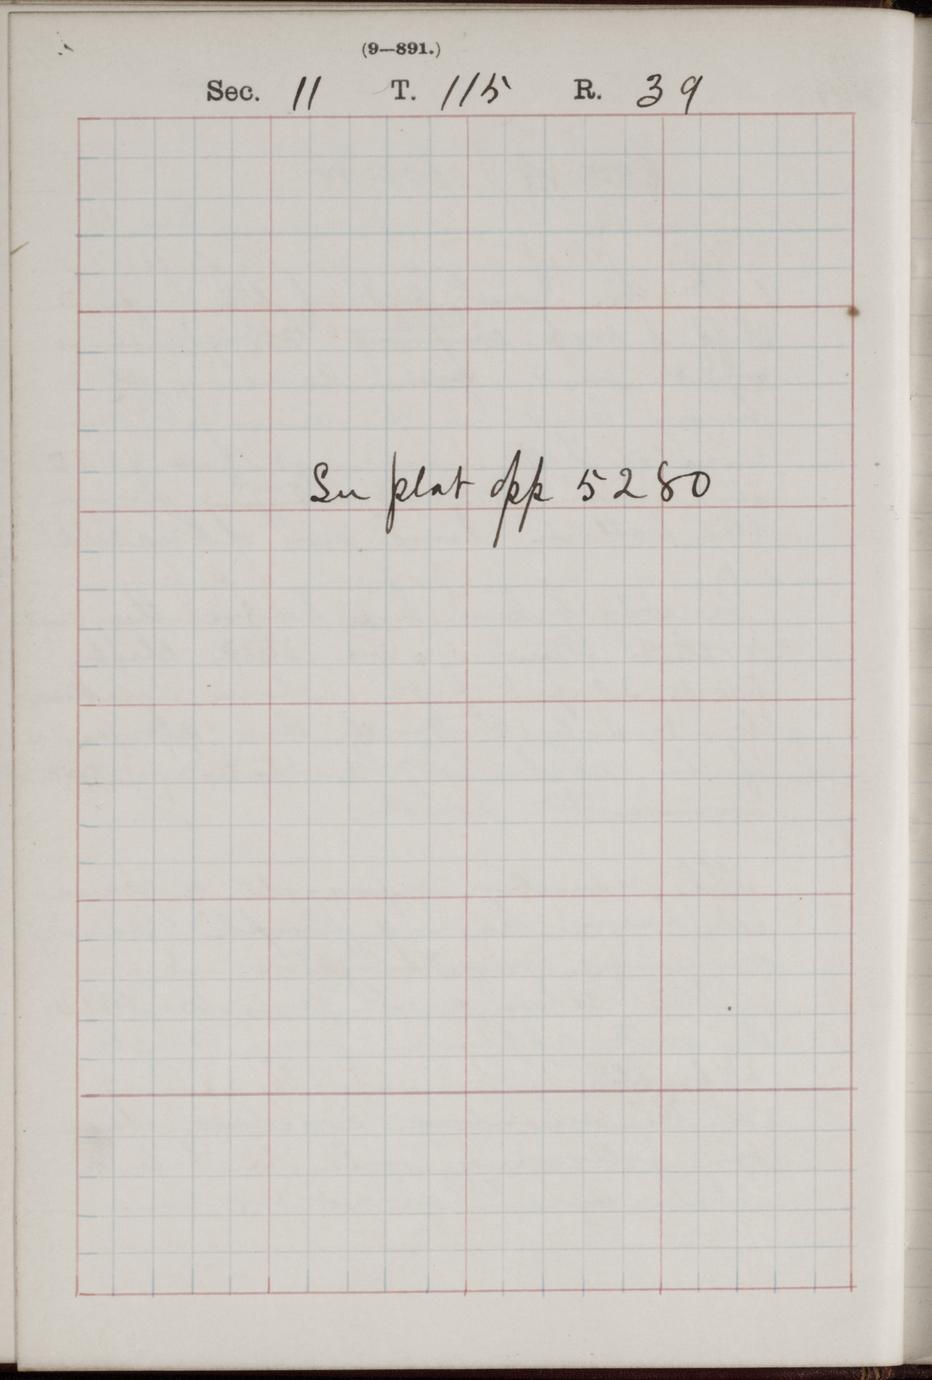 (9—891.)
Sec. 11 T. 115 R. 39
See plat opp 5280